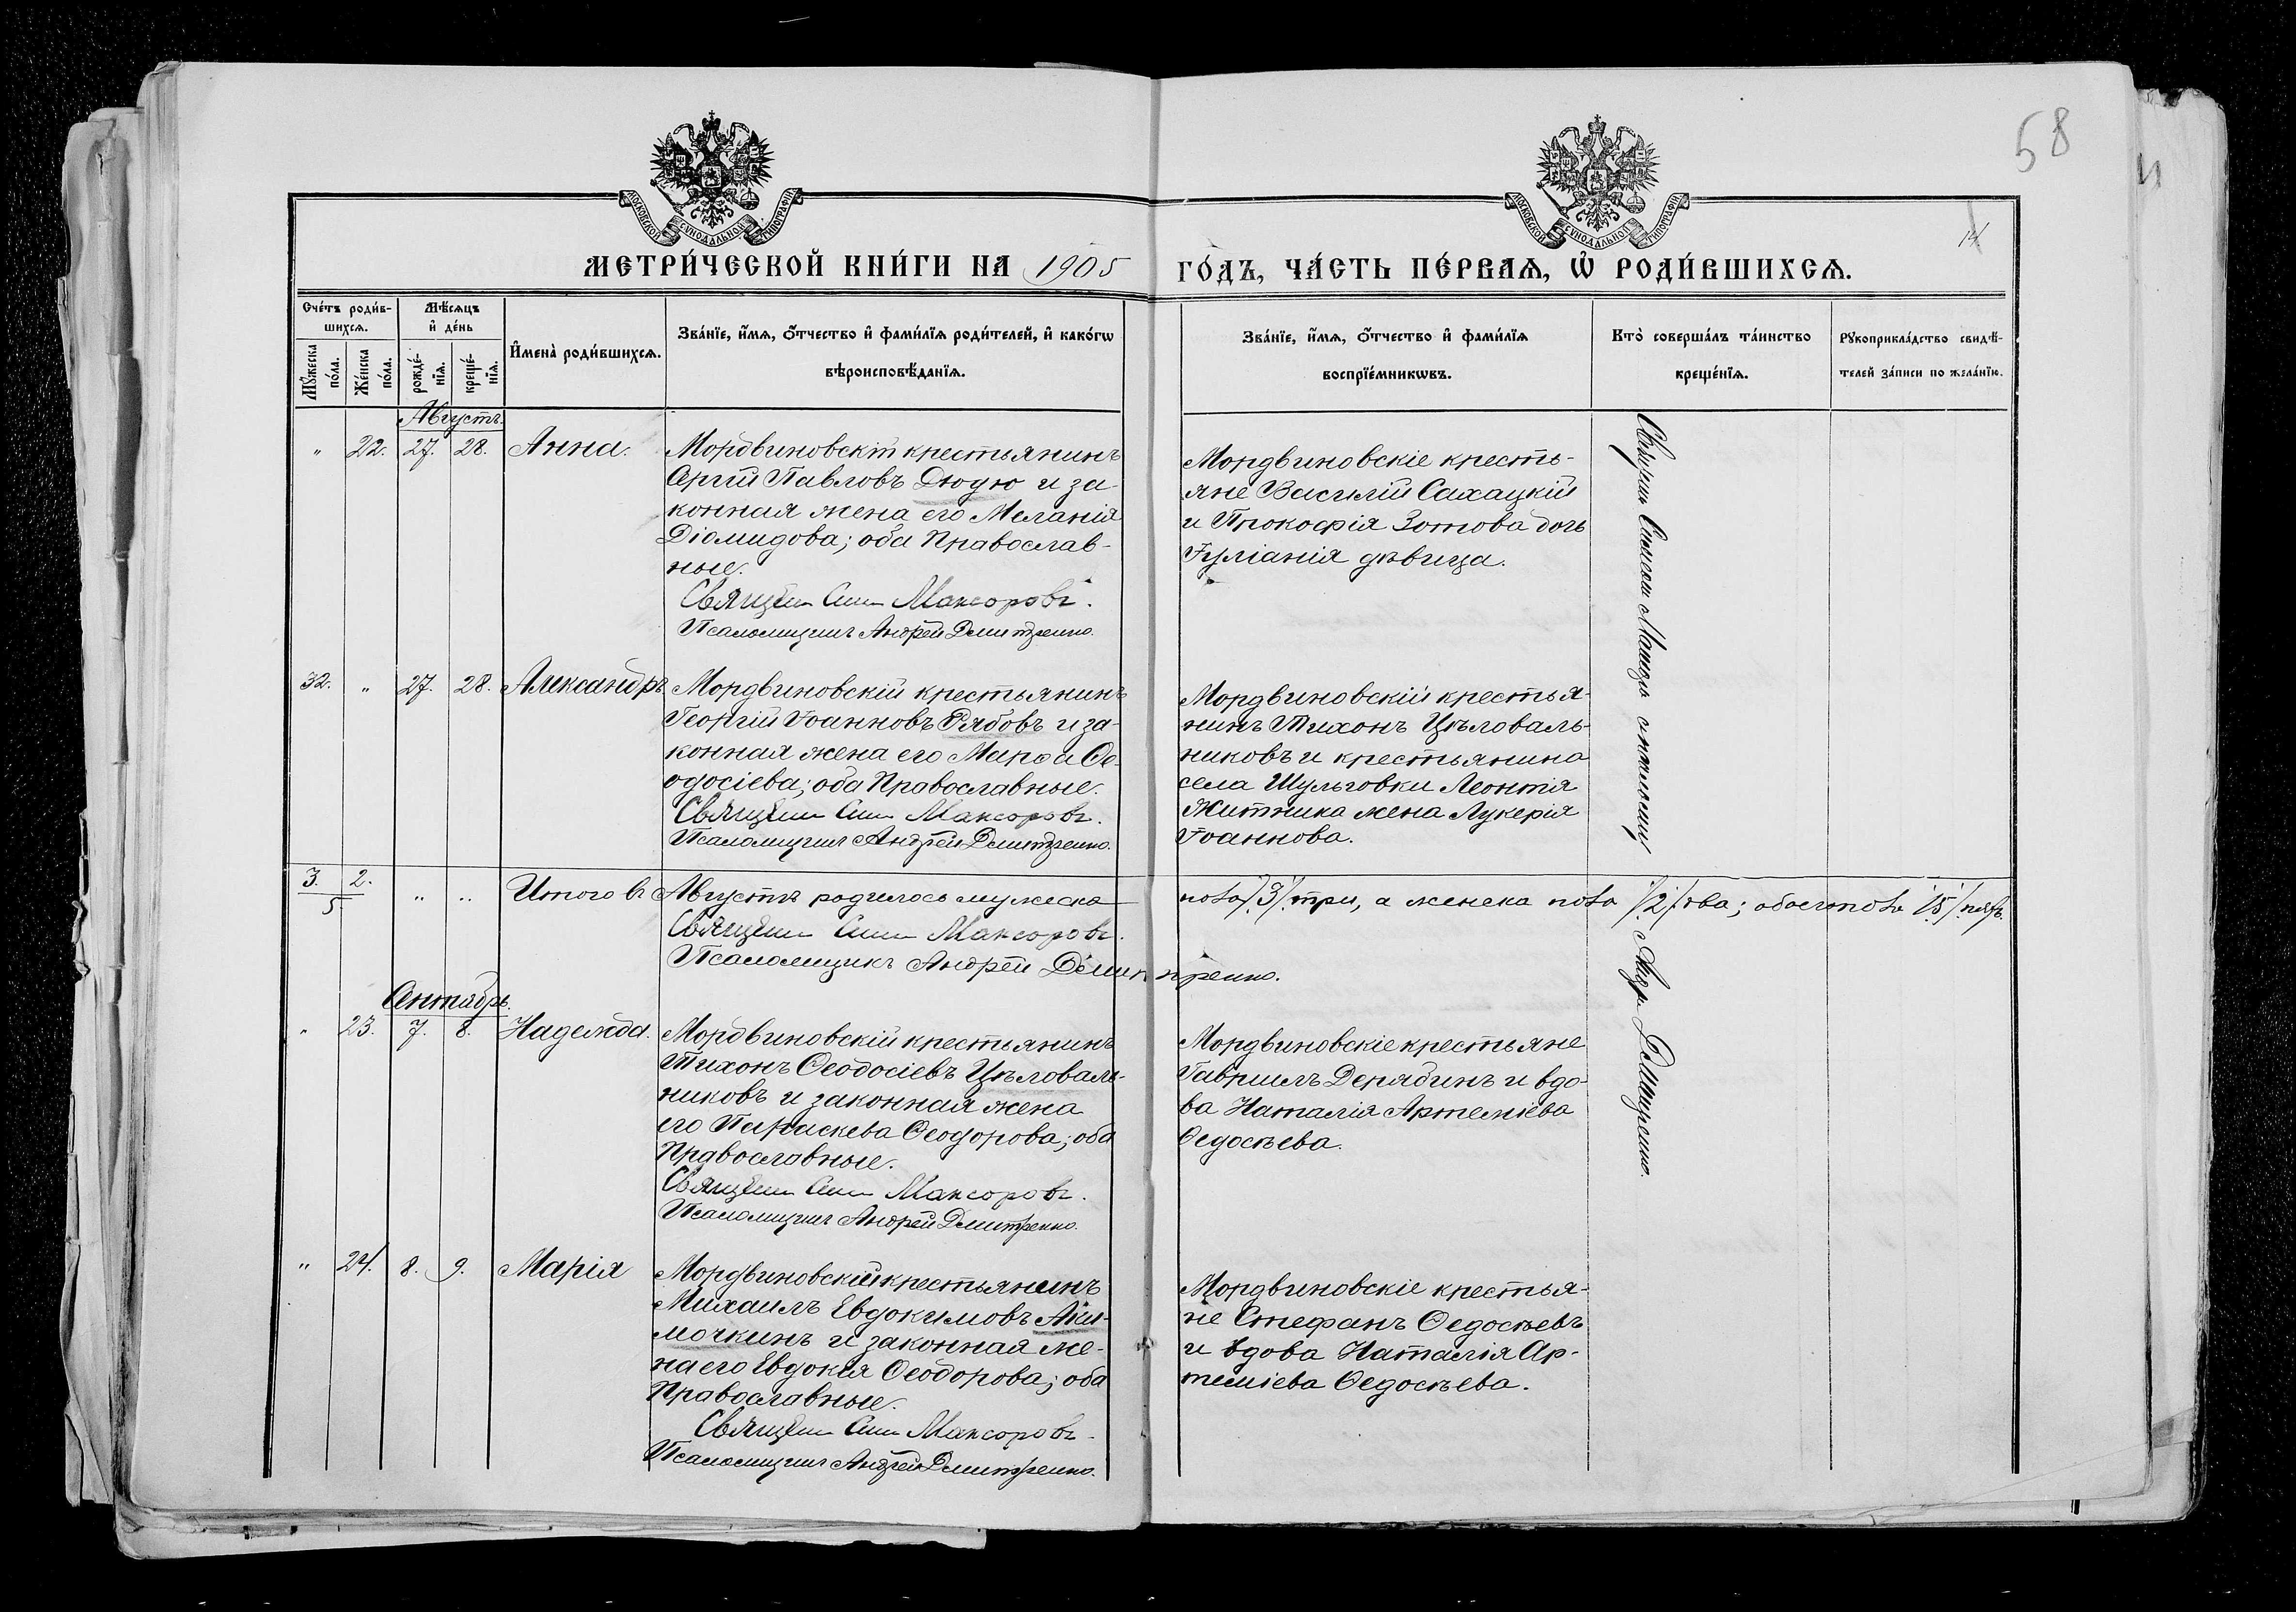 58
14
МОСКОВСКОЙ СѴНОДАЛЬНОЙ ТИПОГРАФІИ
МОСКОВСКОЙ СѴНОДАЛЬНОЙ ТИПОГРАФІИ
МЕТРИ́ЧЕСКОЙ КНИ́ГИ НА 1905 ГО́ДЪ, ЧА́СТЬ ПЕ́РВАѦ, Ѡ҆ РОДИ́ВШИХСѦ.
Сче́тъ роди́в-
шихсѧ.
Мꙋжеска по́ла.
Же́нска по́ла.
Мѣ́сѧцъ
и҆ де́нь
рожде́-
нїѧ.
креще́-
нїѧ.
И҆мена̀ роди́вшихсѧ.
Зва́нїе, и҆́мѧ, ѻ҆́тчество и҆ фами́лїѧ роди́телей, и҆ како́гѡ
вѣроисповѣ́данїѧ.
Зва́нїе, и҆́мѧ, ѻ҆́тчество и҆ фами́лїѧ
воспрїе́мникѡвъ.
Кто̀ соверша́лъ та́инство
креще́нїѧ.
Рꙋкоприкла́дство свидѣ́-
телей за́писи по жела́нїю.
Августъ.
" 22. 27. 28. Анна.
Мордвиновскій крестьянинъ
Сергій Павловъ Дюдю и за-
конная жена его Меланія
Діомидова; оба Православ-
ные.
Священ. Сим. Мансоровъ.
Псаломщикъ Андрей Дмитренко.
Мордвиновскіе кресть-
яне Василій Сахацкій
и Прокофія Зотова дочь
Іуліанія дѣвица.
32. " 27. 28. Александръ
Мордвиновскій крестьянинъ
Георгій Іоанновъ Рябовъ и за-
конная жена его Марѳа Ѳе-
одосіева; оба Православные.
Священ. Сим. Мансоровъ.
Псаломщикъ Андрей Дмитренко.
Мордвиновскій крестья-
нинъ Тихонъ Цѣловаль-
никовъ и крестьянина
села Шульговки Леонтія
Житника жена Лукерія
Іоаннова.
3. 2.
5.
" " Итого въ Августѣ родилось мужеска пола /3/ три, а женска пола /2/ два; обоего пола /5/ пять.
Священ. Сим. Мансоровъ.
Псаломщикъ Андрей Дмитренко.
Сентябрь.
" 23. 7. 8. Надежда.
Мордвиновскій крестьянинъ
Тихонъ Ѳеодосіевъ Цѣловаль-
никовъ и законная жена
его Параскева Ѳеодорова; оба
Православные.
Священ. Сим. Мансоровъ.
Псаломщикъ Андрей Дмитренко.
Мордвиновскіе крестьяне
Гавріилъ Дерябинъ и вдо-
ва Наталія Артеміева
Ѳедосѣева.
" 24. 8. 9. Марія
Мордвиновскій крестьянинъ
Михаилъ Евдокимовъ Аки-
мочкинъ и законная же-
на его Евдокія Ѳеодорова; оба
Православные.
Священ. Сим. Мансоровъ.
Псаломщикъ Андрей Дмитренко.
Мордвиновскіе крестья-
не Стефанъ Ѳедосѣевъ
и вдова Наталія Ар-
теміева Ѳедосѣева.
Андр. Дмитренко.